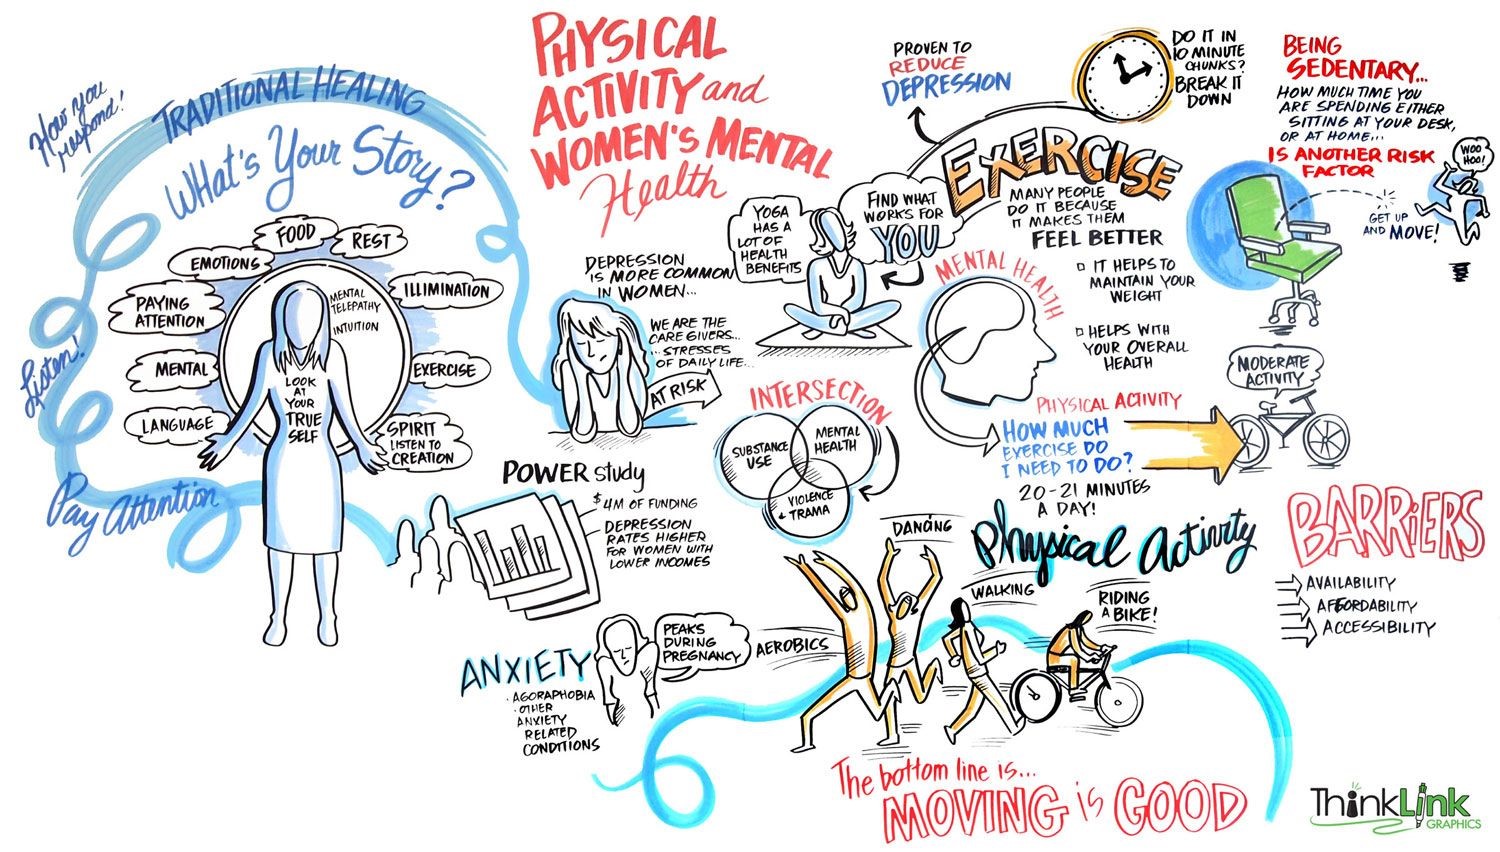 How you
respond!
TRADITIONAL HEALING
WHAT'S YOUR STORY?
Listen!
Pay Attention
FOOD
REST
EMOTIONS
PAYING
ATTENTION
MENTAL
LANGUAGE
ILLIMINATION
EXERCISE
SPIRIT
LISTEN TO
CREATION
MENTAL
TELEPATHY
INTUITION
LOOK
AT
YOUR
TRUE
SELF
PHYSICAL
ACTIVITY and
WOMEN'S MENTAL
Health
DEPRESSION
IS MORE COMMON
IN WOMEN...
WE ARE THE
CARE GIVERS...
...STRESSES
OF DAILY LIFE...
AT RISK
POWER study
$4M OF FUNDING
DEPRESSION
RATES HIGHER
FOR WOMEN WITH
LOWER INCOMES
ANXIETY
· AGORAPHOBIA
· OTHER
ANXIETY
RELATED
CONDITIONS
PEAKS
DURING
PREGNANCY
YOGA
HAS A
LOT OF
HEALTH
BENEFITS
FIND WHAT
WORKS FOR
YOU
INTERSECTION
SUBSTANCE
USE
MENTAL
HEALTH
VIOLENCE
+ TRAMA
PROVEN TO
REDUCE
DEPRESSION
DO IT IN
10 MINUTE
CHUNKS?
BREAK IT
DOWN
EXERCISE
MANY PEOPLE
DO IT BECAUSE
IT MAKES THEM
FEEL BETTER
IT HELPS TO
MAINTAIN YOUR
WEIGHT
HELPS WITH
YOUR OVERALL
HEALTH
MENTAL HEALTH
PHYSICAL ACTIVITY
HOW MUCH
EXERCISE DO
I NEED TO DO?
20-21 MINUTES
A DAY!
MODERATE
ACTIVITY
BEING
SEDENTARY...
HOW MUCH TIME YOU
ARE SPENDING EITHER
SITTING AT YOUR DESK,
OR AT HOME...
IS ANOTHER RISK
FACTOR
WOO
HOO!
GET UP
AND MOVE!
Physical Activity
AEROBICS
DANCING
WALKING
RIDING
A BIKE!
BARRIERS
AVAILABILITY
AFFORDABILITY
ACCESSIBILITY
The bottom line is...
MOVING is GOOD
ThinkLink
GRAPHICS